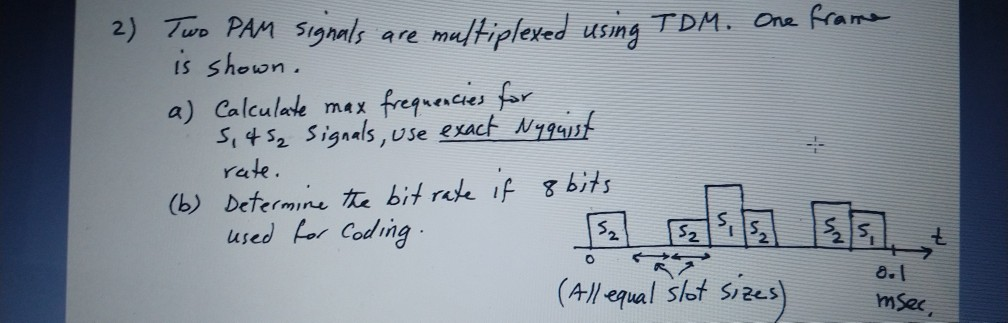 2) Two PAM signals are multiplexed using TDM. One frame
is shown.
a) Calculate max frequencies for
S₁ & S₂ signals, use exact Nyquist
rate.
(b) Determine the bit rate if 8 bits
used for coding.
S₂ S₂ S₁ S₂ S₂ S₁ t
0 0.1
msec.
(All equal slot sizes)